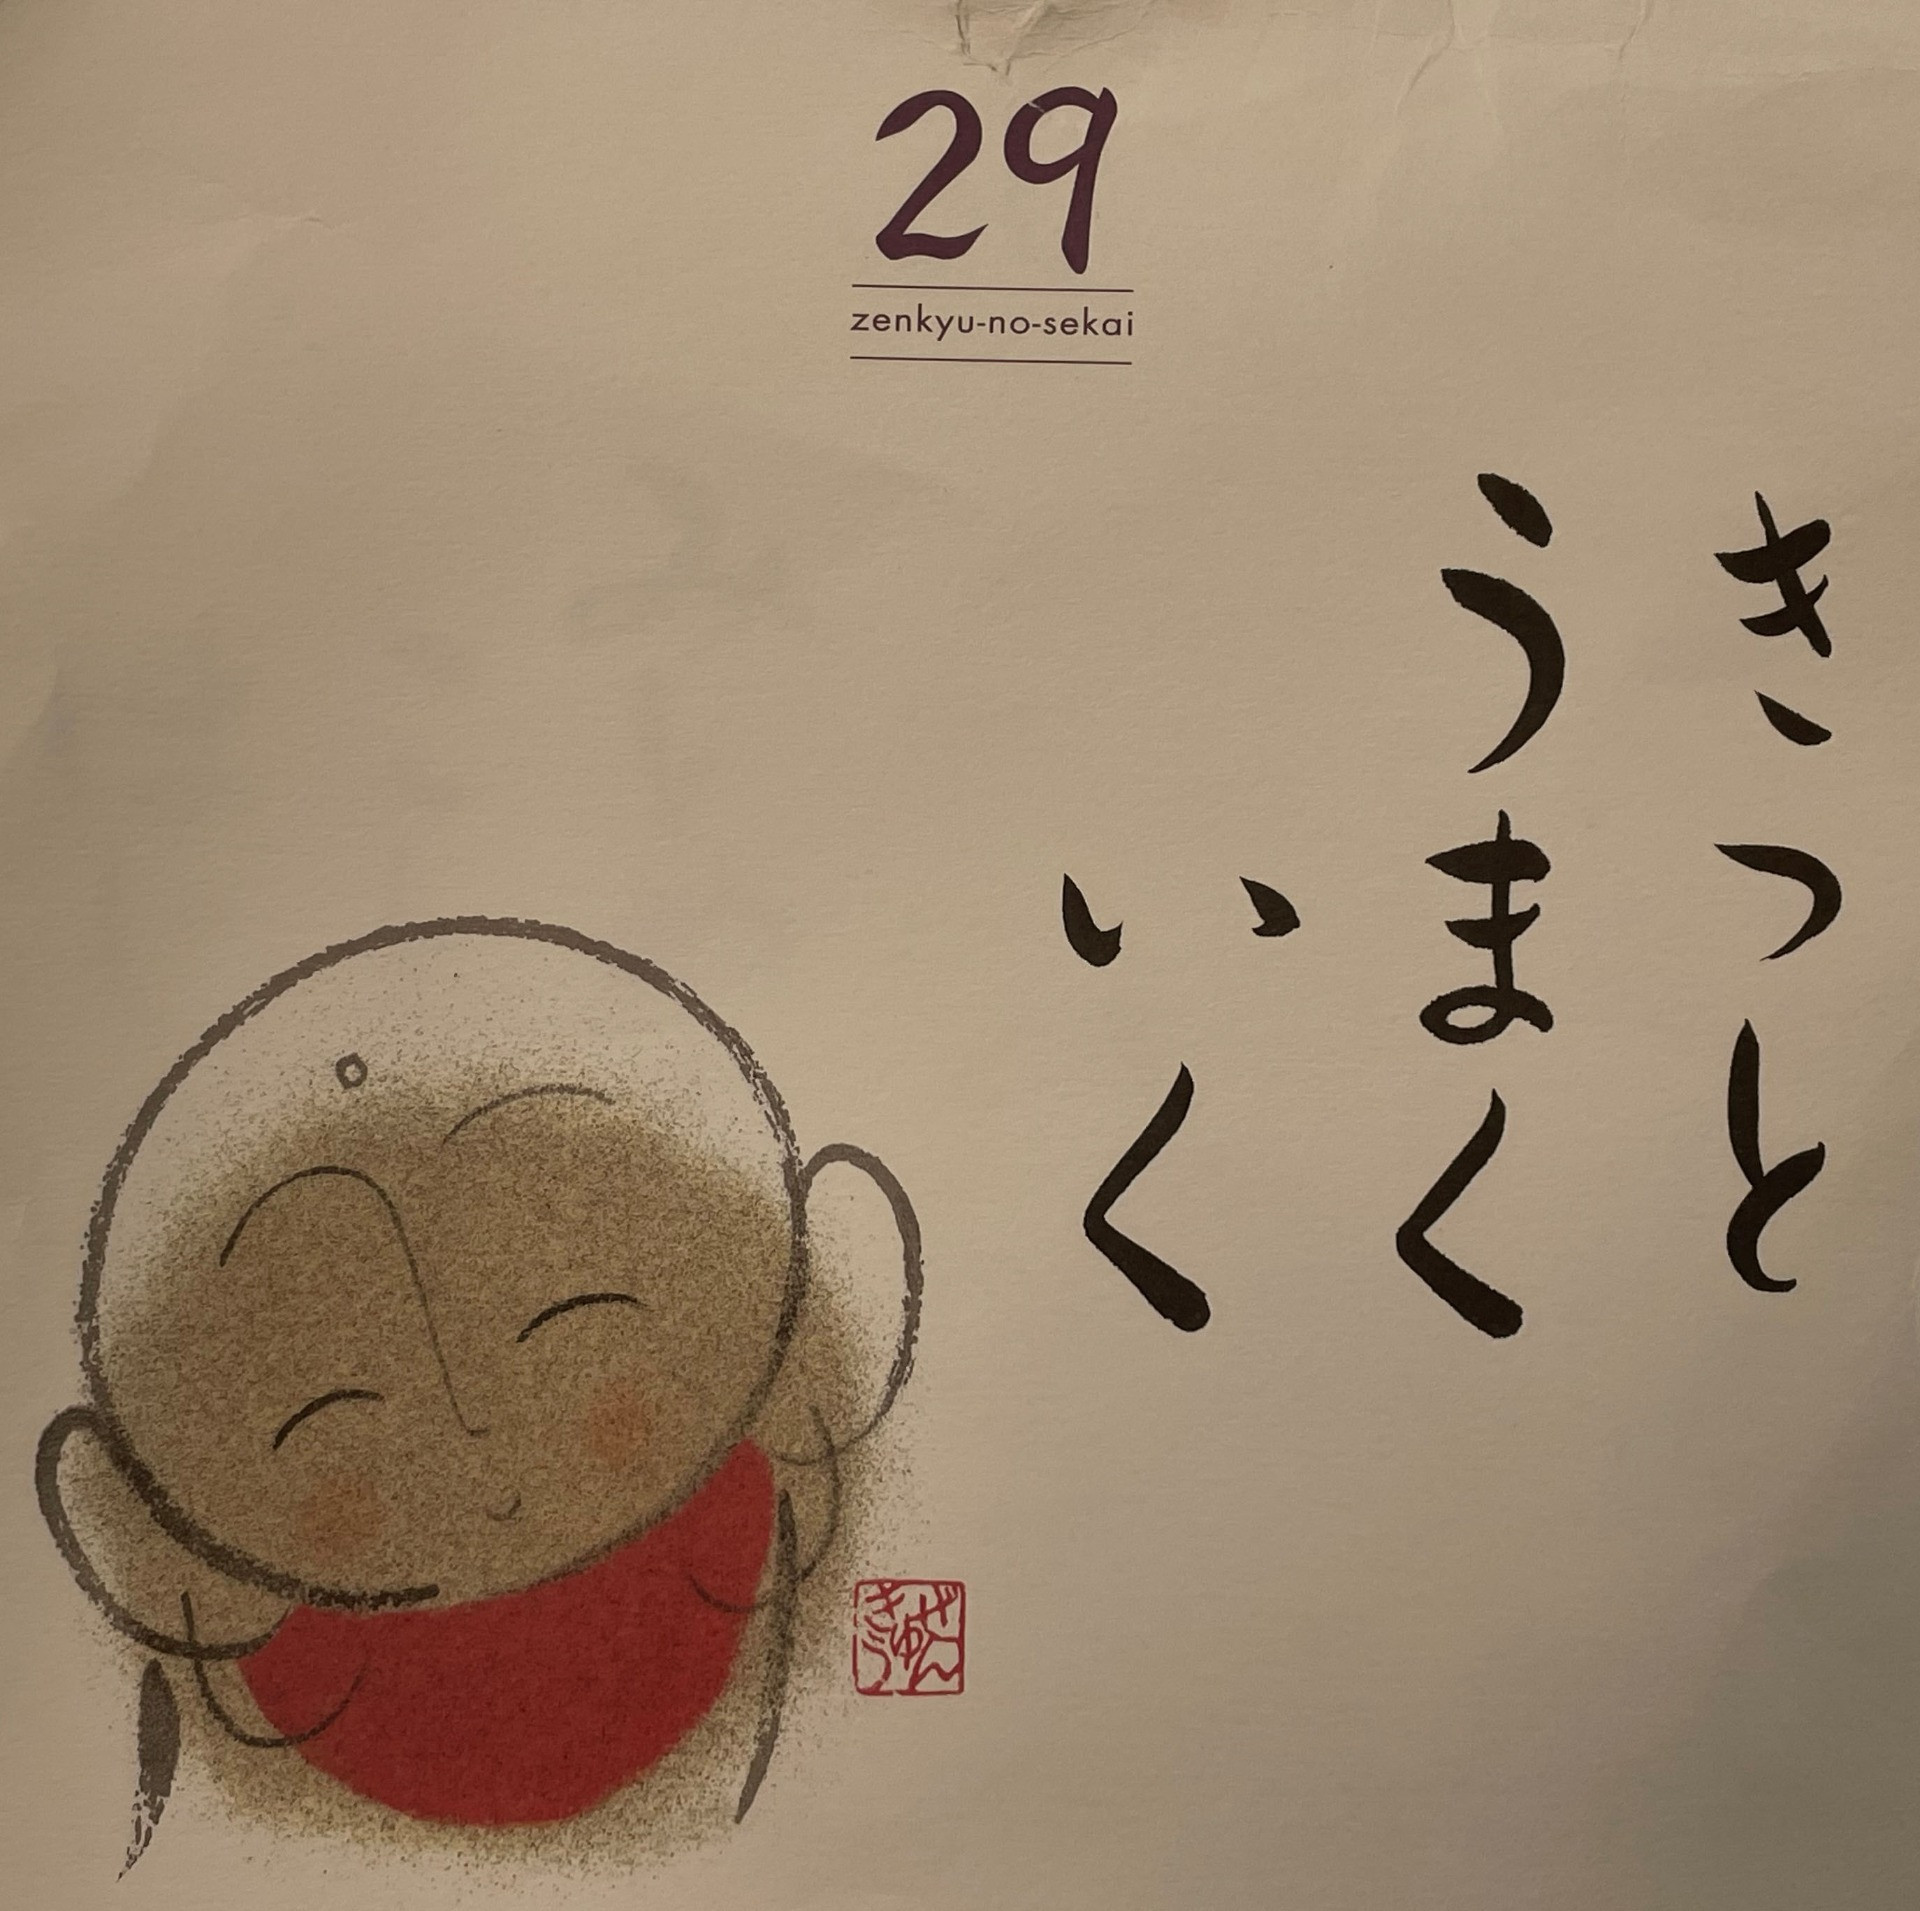 29
zenkyu-no-sekai
きっと
うまく
いく
ぜん
きゅう